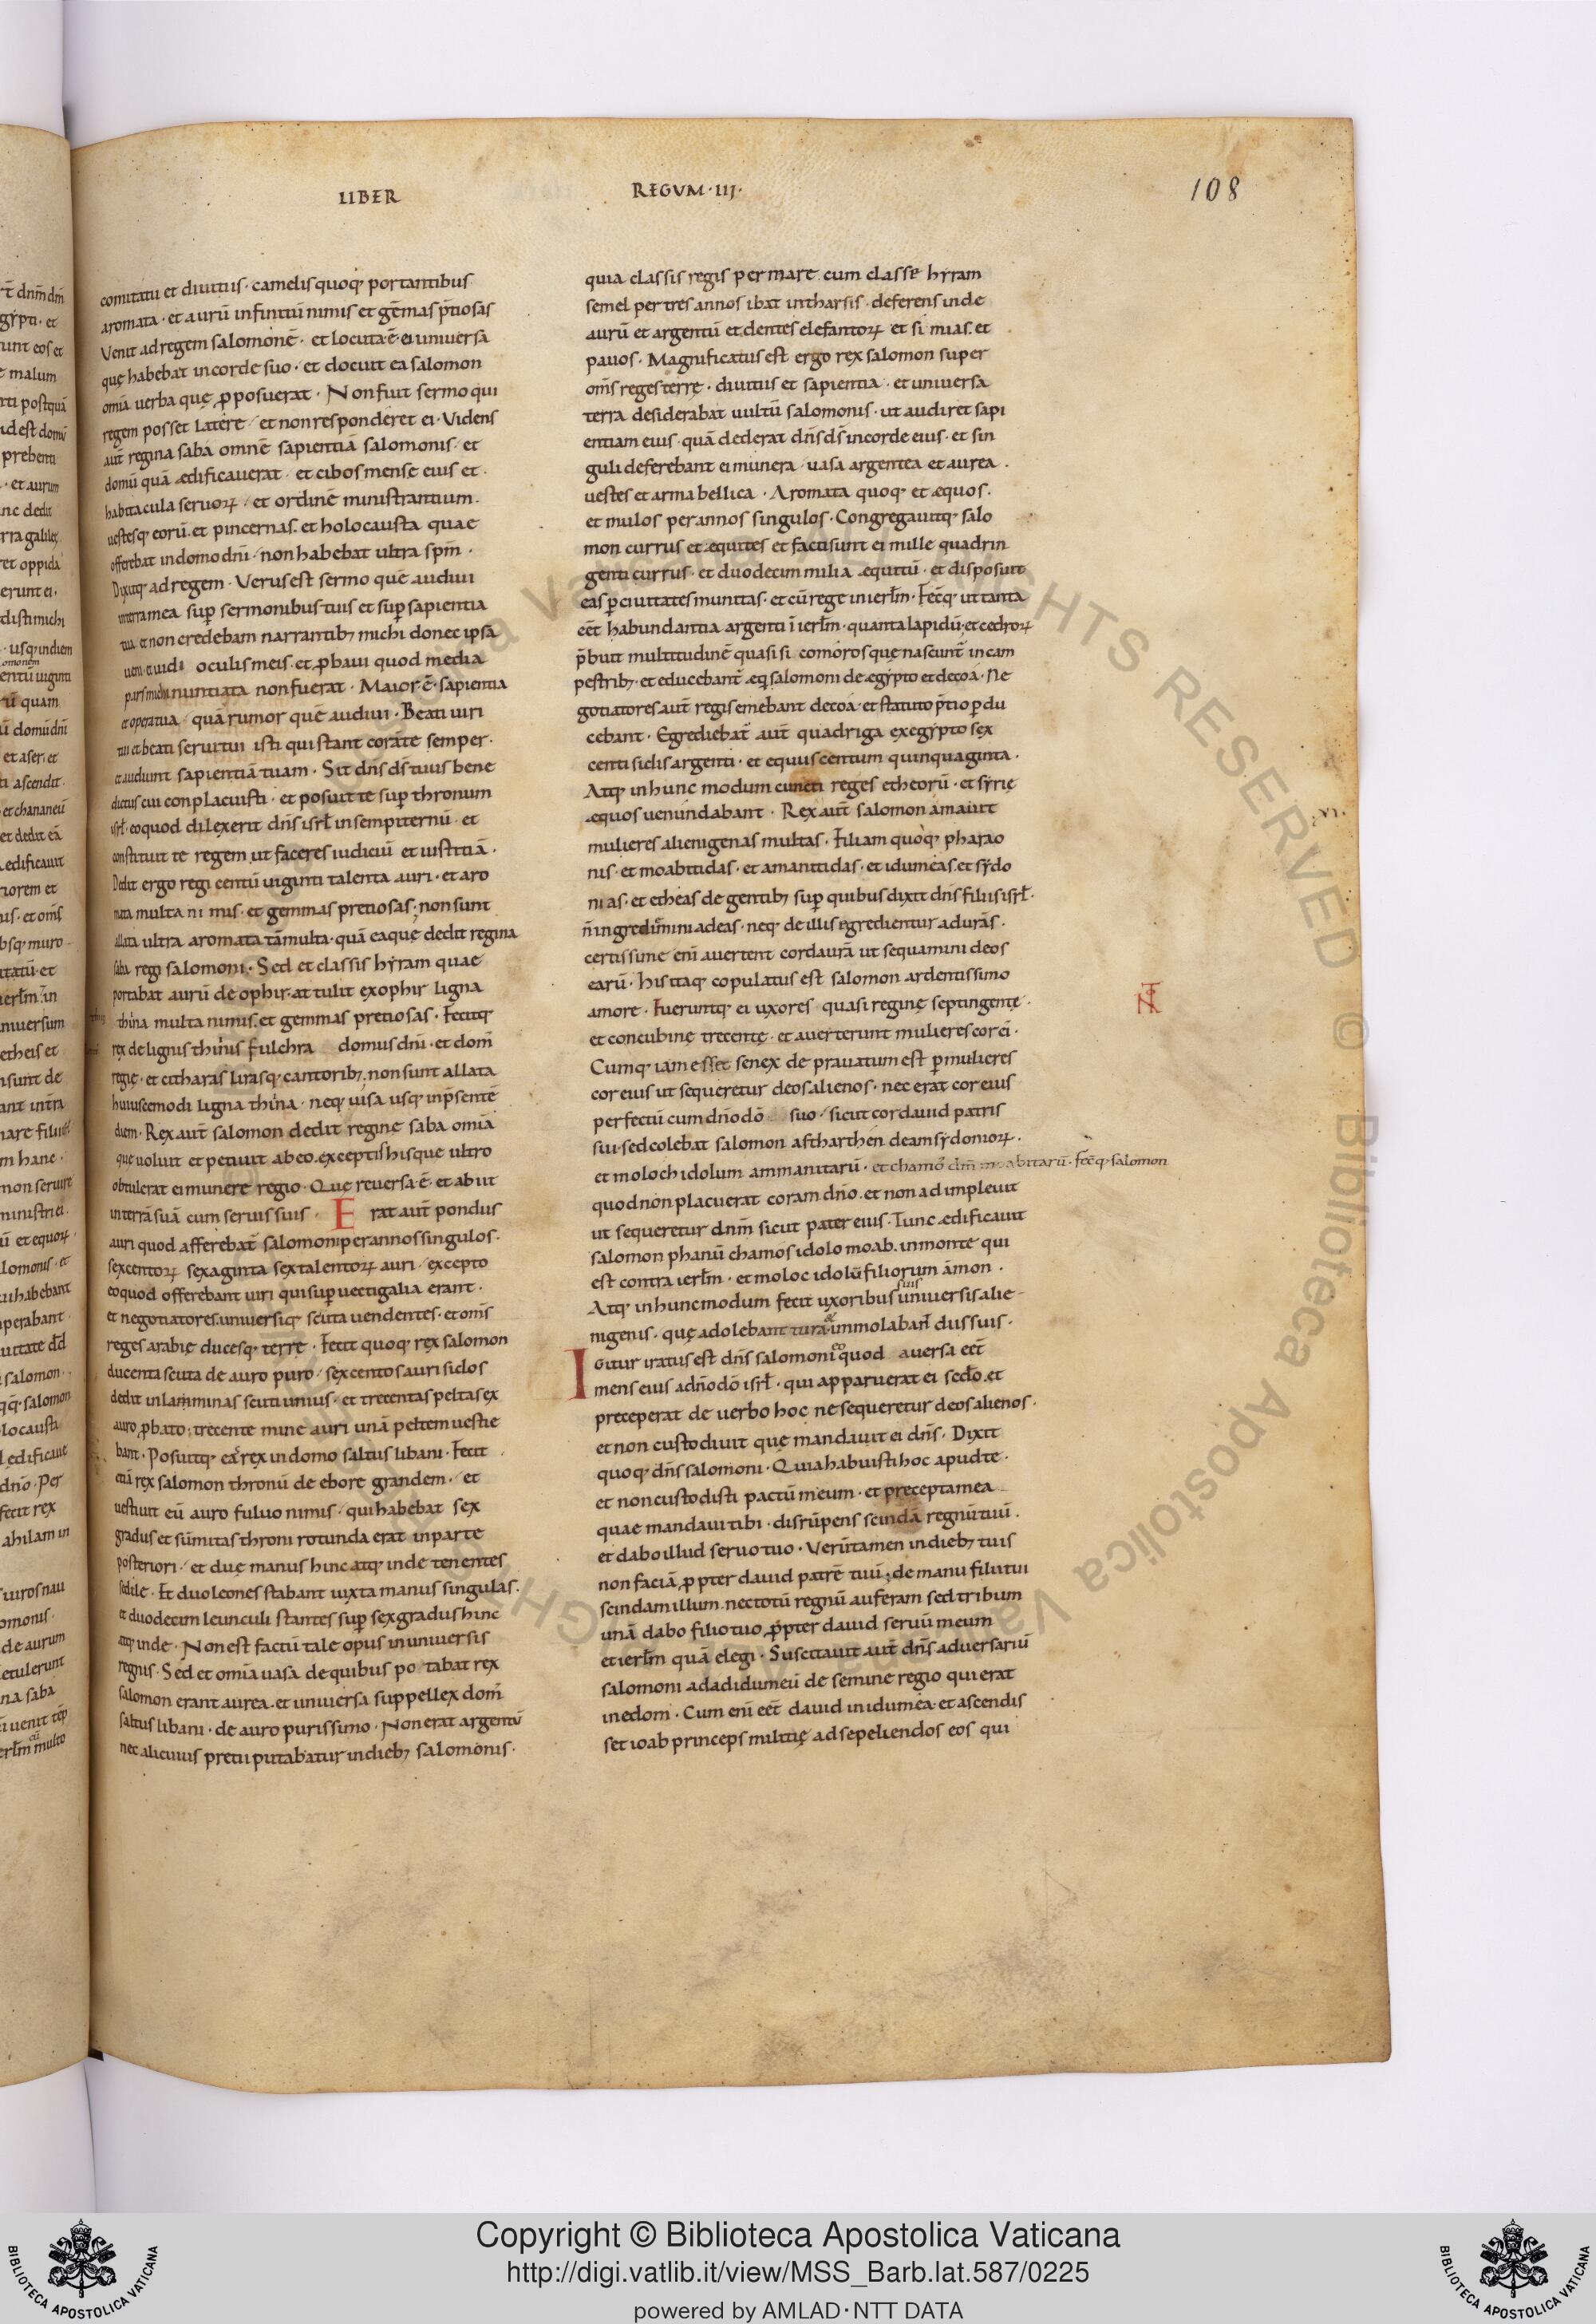 LIBER
REGUM·III·
108
comitatu et diuitiis· camelis quoq; portantibus
aromata· et aurū infinitū nimis et gēmas p̄tiosas
Venit ad regem salomonē· et locuta ē ei uniuersa
quę habebat in corde suo· et docuit ea salomon
omīa uerba quę ꝓposuerat· Non fuit sermo qui
regem posset latere· et non responderet ei· Videns
aut̄ regina saba omnē sapientiā salomonis· et
domū quā ędificauerat· et cibos mense eius et·
habitacula seruoꝝ· et ordinē ministrantium·
uestesq; eorū· et pincernas· et holocausta quae
offerebat in domo dn̄i· non habebat ultra sp̄m·
Dixitq; ad regem· Verus est sermo quē audiui
in terra mea suꝑ sermonibus tuis et suꝑ sapientia
tua· et non credebam narrantib; michi donec ipsa
ueni et uidi oculis meis· et ꝓbaui quod media
pars michi nuntiata non fuerat· Maior ē· sapientia
et opera tua· quā rumor quē audiui· Beati uiri
tui et beati serui tui isti qui stant corā te semper·
et audiunt sapientiā tuam· Sit dn̄s ds̄ tuus bene
dictus cui conplacuisti· et posuit te suꝑ thronum
isrł· eo quod dilexerit dn̄s isrł in sempiternū· et
constituit te regem ut faceres iudiciū et iustitiā·
Dedit ergo regi centū uiginti talenta auri· et aro
mata multa nimis· et gemmas pretiosas· non sunt
allata ultra aromata tā multa· quā ea quę dedit regina
saba regi salomoni· Sed et classis hyram quae
portabat aurū de ophir· attulit ex ophir ligna
thina multa nimis· et gemmas pretiosas· Fecitq;
rex de lignis thinis fulchra domus dn̄i· et dom̄
regię· et citharas lirasq; cantorib;· non sunt allata
huiuscemodi ligna thina· neq; uisa usq; in p̄sentē
diem· Rex aut̄ salomon dedit reginę saba omīa
quę uoluit et petiuit ab eo· exceptis his que ultro
obtulerat ei munere regio· Quę reuersa ē· et abiit
in terrā suā cum seruis suis· Erat aut̄ pondus
auri quod afferebat̄ salomoni per annos singulos·
sexcentoꝝ sexaginta sex talentoꝝ auri· excepto
eo quod offerebant uiri qui suꝑ uectigalia erant·
et negotiatores· uniuersiq; scuta uendentes· et om̄s
reges arabię ducesq; terrę· Fecit quoq; rex salomon
ducenta scuta de auro puro· sexcentos auri siclos
dedit in lamminas scuti unius· et trecentas peltas ex
auro ꝓbato; trecente mine auri unā peltem uestie
bant· Posuitq; ea rex in domo saltus libani· Fecit
etiā rex salomon thronū de ebore grandem· et
uestiuit eū auro fuluo nimis· qui habebat sex
gradus et sūmitas throni rotunda erat in parte
posteriori· et duę manus hinc atq; inde tenentes
sedile· Et duo leones stabant iuxta manus singulas·
et duodecim leunculi stantes suꝑ sex gradus hinc
atq; inde· Non est factū tale opus in uniuersis
regnis· Sed et omīa uasa de quibus potabat rex
salomon erant aurea· et uniuersa suppellex dom̄
saltus libani· de auro purissimo· Non erat argentū
nec alicuius pretii putabatur in dieb; salomonis·
quia classis regis per mare cum classe hyram
semel per tres annos ibat in tharsis· deferens inde
aurū et argentū et dentes elefantoꝝ et simias· et
pauos· Magnificatus est ergo rex salomon super
om̄s reges terrę· diuitiis et sapientia· et uniuersa
terra desiderabat uultū salomonis· ut audiret sapi
entiam eius· quā dederat dn̄s ds̄ in corde eius· et sin
guli deferebant ei munera· uasa argentea et aurea·
uestes et arma bellica· Aromata quoq; et ęquos·
et mulos per annos singulos· Congregauitq; salo
mon currus et ęquites et facti sunt ei mille quadrin
genti currus· et duodecim milia ęquitū· et disposuit
eas ꝑ ciuitates munitas· et cū rege in ierlm̄· Fec̄q; ut tanta
eēt habundantia argenti ī ierlm̄· quanta lapidū· et cedroꝝ
p̄buit multitudinē quasi sicomoros quę nascunt̄ in cam
pestrib;· et educebant̄ ęqi salomoni de ęgypto et de coa· Ne
gotiatores aut̄ regis emebant de coa· et statuto p̄tio ꝑdu
cebant· Egrediebat̄ aut̄ quadriga ex egypto sex
centi siclis argenti· et equus centum quinquaginta·
Atq; in hunc modum cuncti reges etheorū· et syrię
ęquos uenundabant· Rex aut̄ salomon amauit
mulieres alienigenas multas· Filiam quoq; pharao
nis· et moabitidas· et amanitidas· et idumeas· et sydo
nias· et etheas de gentib; suꝑ quibus dixit dn̄s filiis isrł·
n̄ ingredimini ad eas· neq; de illis egredientur ad urās·
certissime enī auertent corda urā ut sequamini deos
earū· His itaq; copulatus est salomon ardentissimo
amore· Fueruntq; ei uxores quasi reginę septingentę·
et concubinę trecentę· et auerterunt mulieres cor ei·
Cumq; iam esset senex deprauatum est ꝑ mulieres
cor eius ut sequeretur deos alienos· nec erat cor eius
perfectū cum dn̄o dō suo· sicut cor dauid patris
sui· sed colebat salomon astharthen deam sydonioꝝ·
et moloch idolum ammanitarū· et chamos dm̄ moabitarū· Fec̄q; salomon
quod non placuerat coram dn̄o· et non adimpleuit
ut sequeretur dn̄m sicut pater eius· Tunc ędificauit
salomon phanū chamos idolo moab· in monte qui
est contra ierlm̄· et moloc idolū filiorum āmon·
suis
Atq; in hunc modum fecit uxoribus uniuersis alie
nigenis· quę adolebant tura et immolabant̄ diis suis·
Igitur iratus est dn̄s salomoni eo quod auersa eēt
mens eius a dn̄o dō isrł· qui apparuerat ei sedō· et
preceperat de uerbo hoc ne sequeretur deos alienos·
et non custodiuit quę mandauit ei dn̄s· Dixit
quoq; dn̄s salomoni· Quia habuisti hoc apud te·
et non custodisti pactū meum· et precepta mea
quae mandaui tibi· disrūpens scindā regnū tuū·
et dabo illud seruo tuo· Verūtamen in dieb; tuis
non faciā ꝓpter dauid patrē tuū; de manu filii tui
scindam illum· nec totū regnū auferam sed tribum
unā dabo filio tuo ꝓpter dauid seruū meum
et ierlm̄ quā elegi· Suscitauit aut̄ dn̄s aduersariū
salomoni adad idumeū de semine regio qui erat
in edom· Cum enī eēt dauid in idumea· et ascendis
set ioab princeps militię ad sepeliendos eos qui
Copyright © Biblioteca Apostolica Vaticana
http://digi.vatlib.it/view/MSS_Barb.lat.587/0225
powered by AMLAD·NTT DATA
BIBLIOTECA APOSTOLICA VATICANA
BIBLIOTECA APOSTOLICA VATICANA